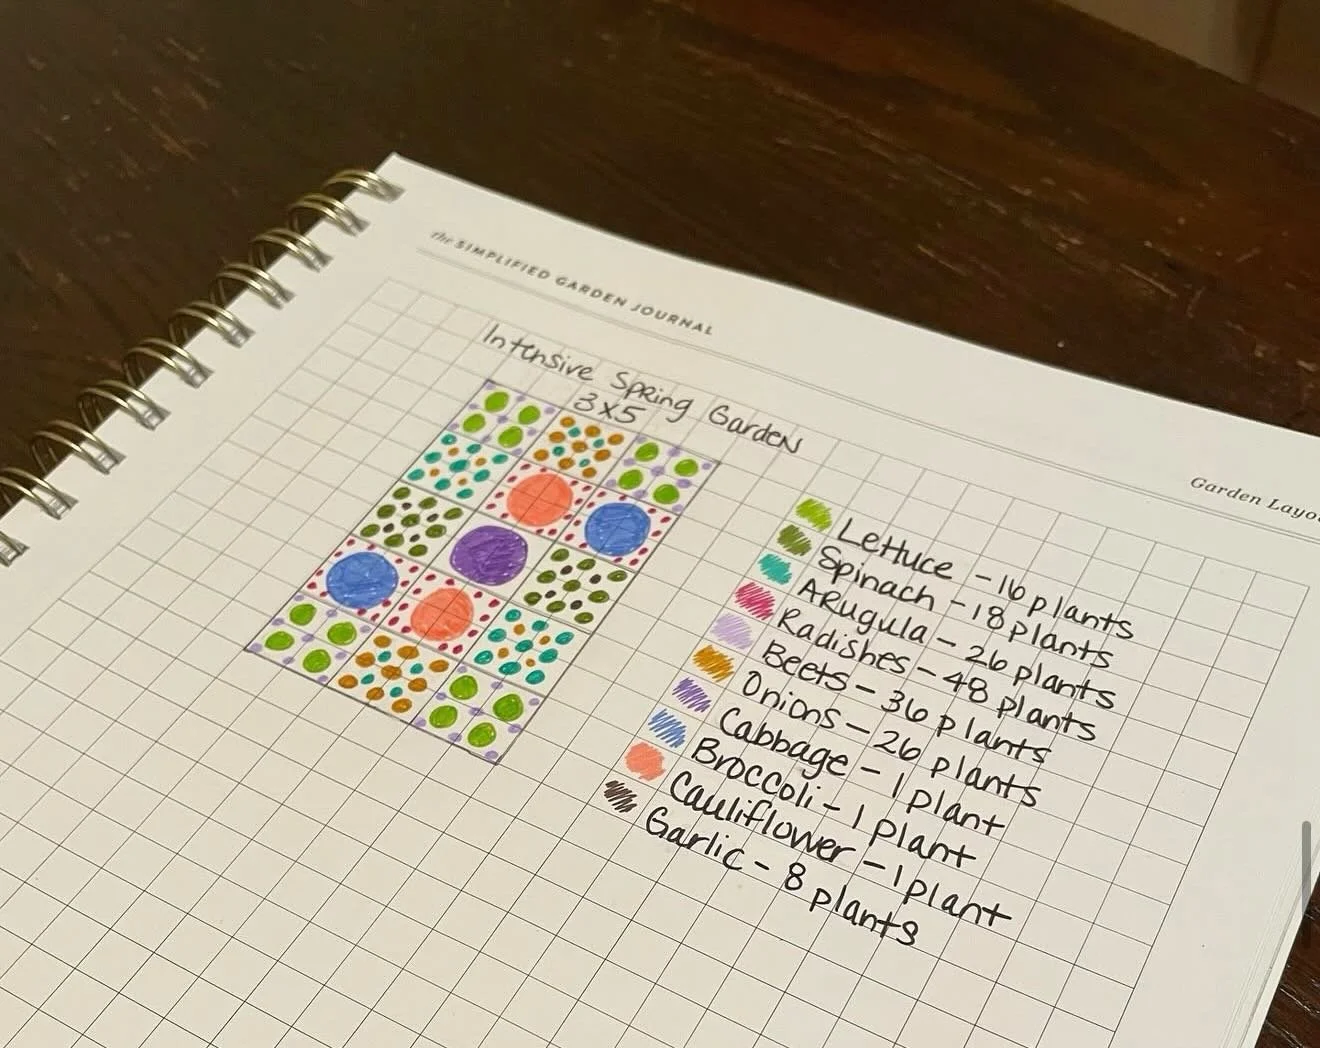 The SIMPLIFIED GARDEN JOURNAL
Garden Layou
Intensive Spring Garden
3x5
Lettuce - 16 plants
Spinach - 18 plants
ARugula - 26 plants
Radishes - 48 plants
Beets - 36 plants
Onions - 26 plants
Cabbage - 1 plant
Broccoli - 1 Plant
Cauliflower - 1 plant
Garlic - 8 plants